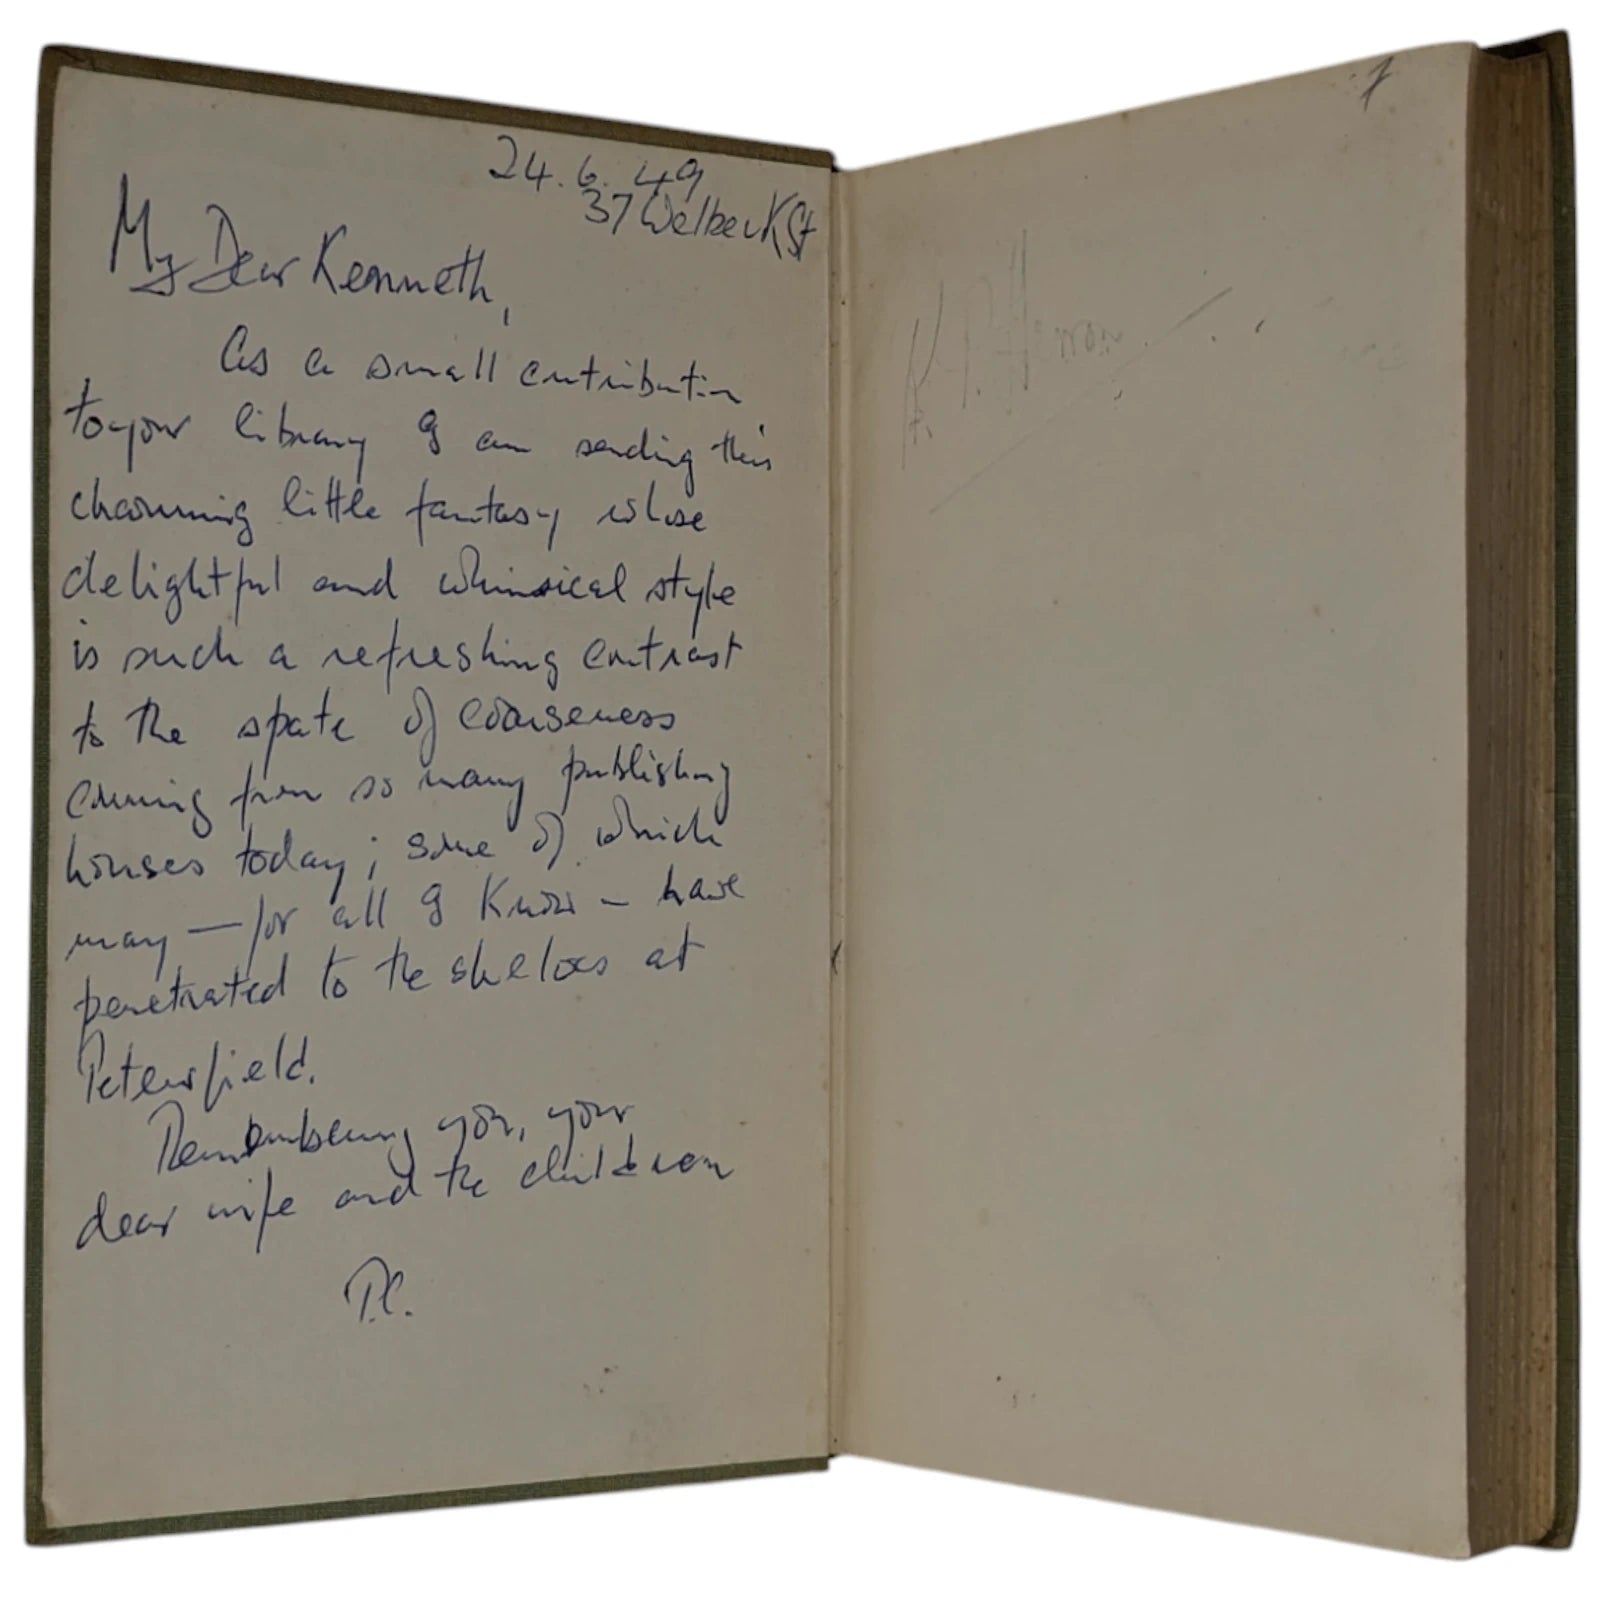 24.6.49
37 Welbeck St
My Dear Kenneth,
As a small contribution
to your library I am sending this
charming little fantasy whose
delightful and whimsical style
is such a refreshing contrast
to the spate of coarseness
coming from so many publishing
houses today; some of which
may — for all I know — have
penetrated to the shelves at
Petersfield.
Remembering you, your
dear wife and the children
P.C.
K.